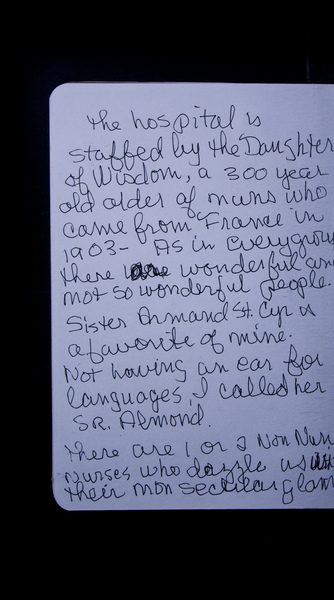 The hospital is
staffed by the Daughter
of Wisdom, a 300 year
old order of nuns who
came from France in
1903- As in every grou
there are wonderful an
not so wonderful people.
Sister Armand St. Cyr is
a favorite of mine.
Not having an ear for
languages, I called her
SR. Almond.
There are 1 or 2 Non Nun
nurses who dazzle us
their non secular glam